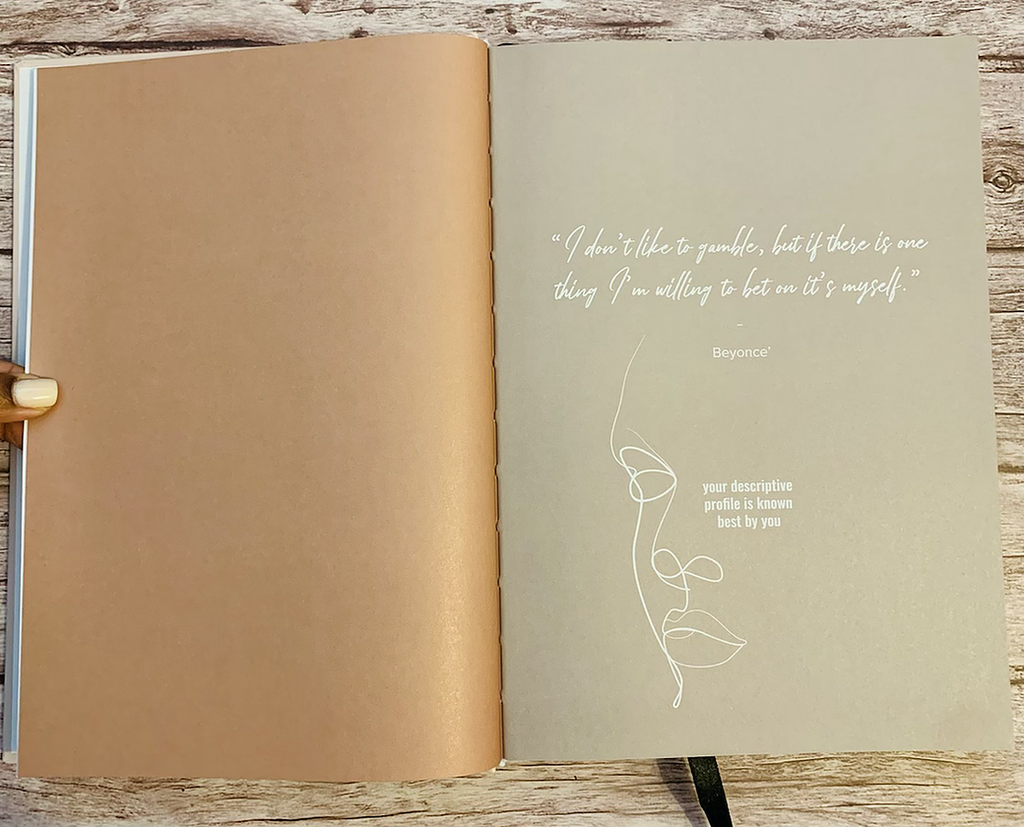 “I don't like to gamble, but if there is one
thing I'm willing to bet on it's myself.”
-
Beyonce'
your descriptive
profile is known
best by you